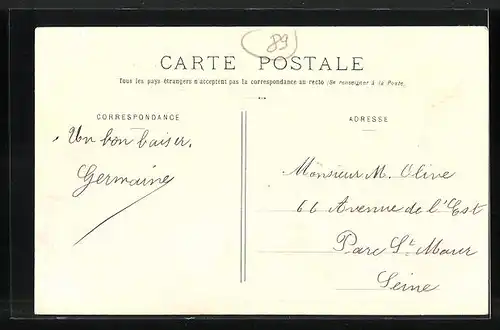 89
CARTE POSTALE
Tous les pays étrangers n'acceptent pas la correspondance au recto (Se renseigner à la Poste.
CORRESPONDANCE
Un bon baiser.
Germaine
ADRESSE
Monsieur M. Olive
66 Avenue de l'Est
Parc St. Maur
Seine